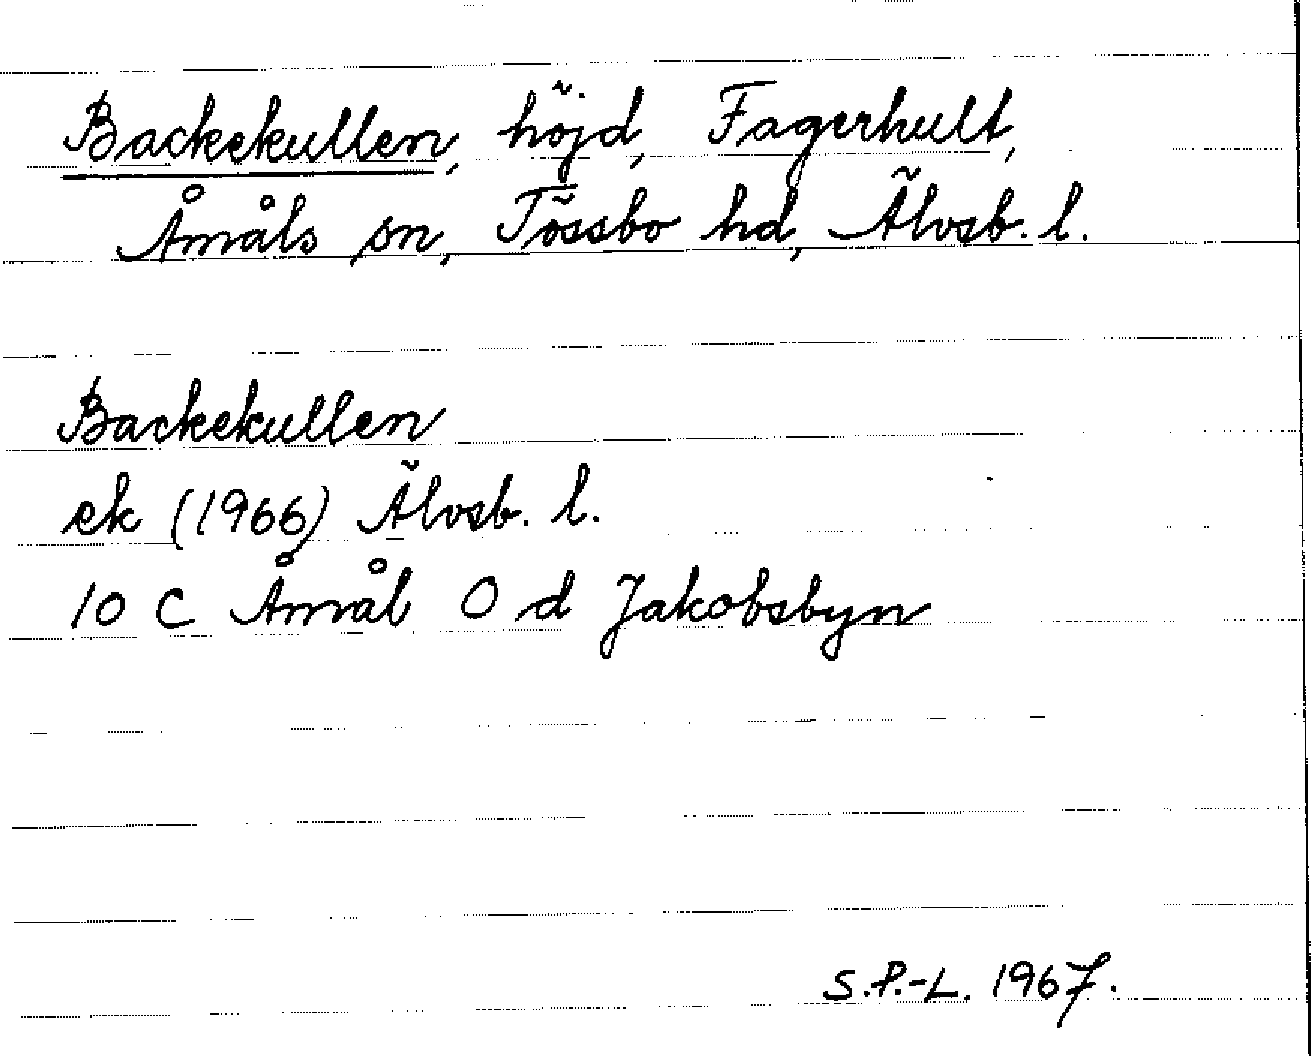 Backekullen, höjd, Fagerhult,
Åmåls sn, Tössbo hd, Älvsb. l.
Backekullen
ek (1966) Älvsb. l.
10 C Åmål O d Jakobsbyn
S.P.-L. 1967.